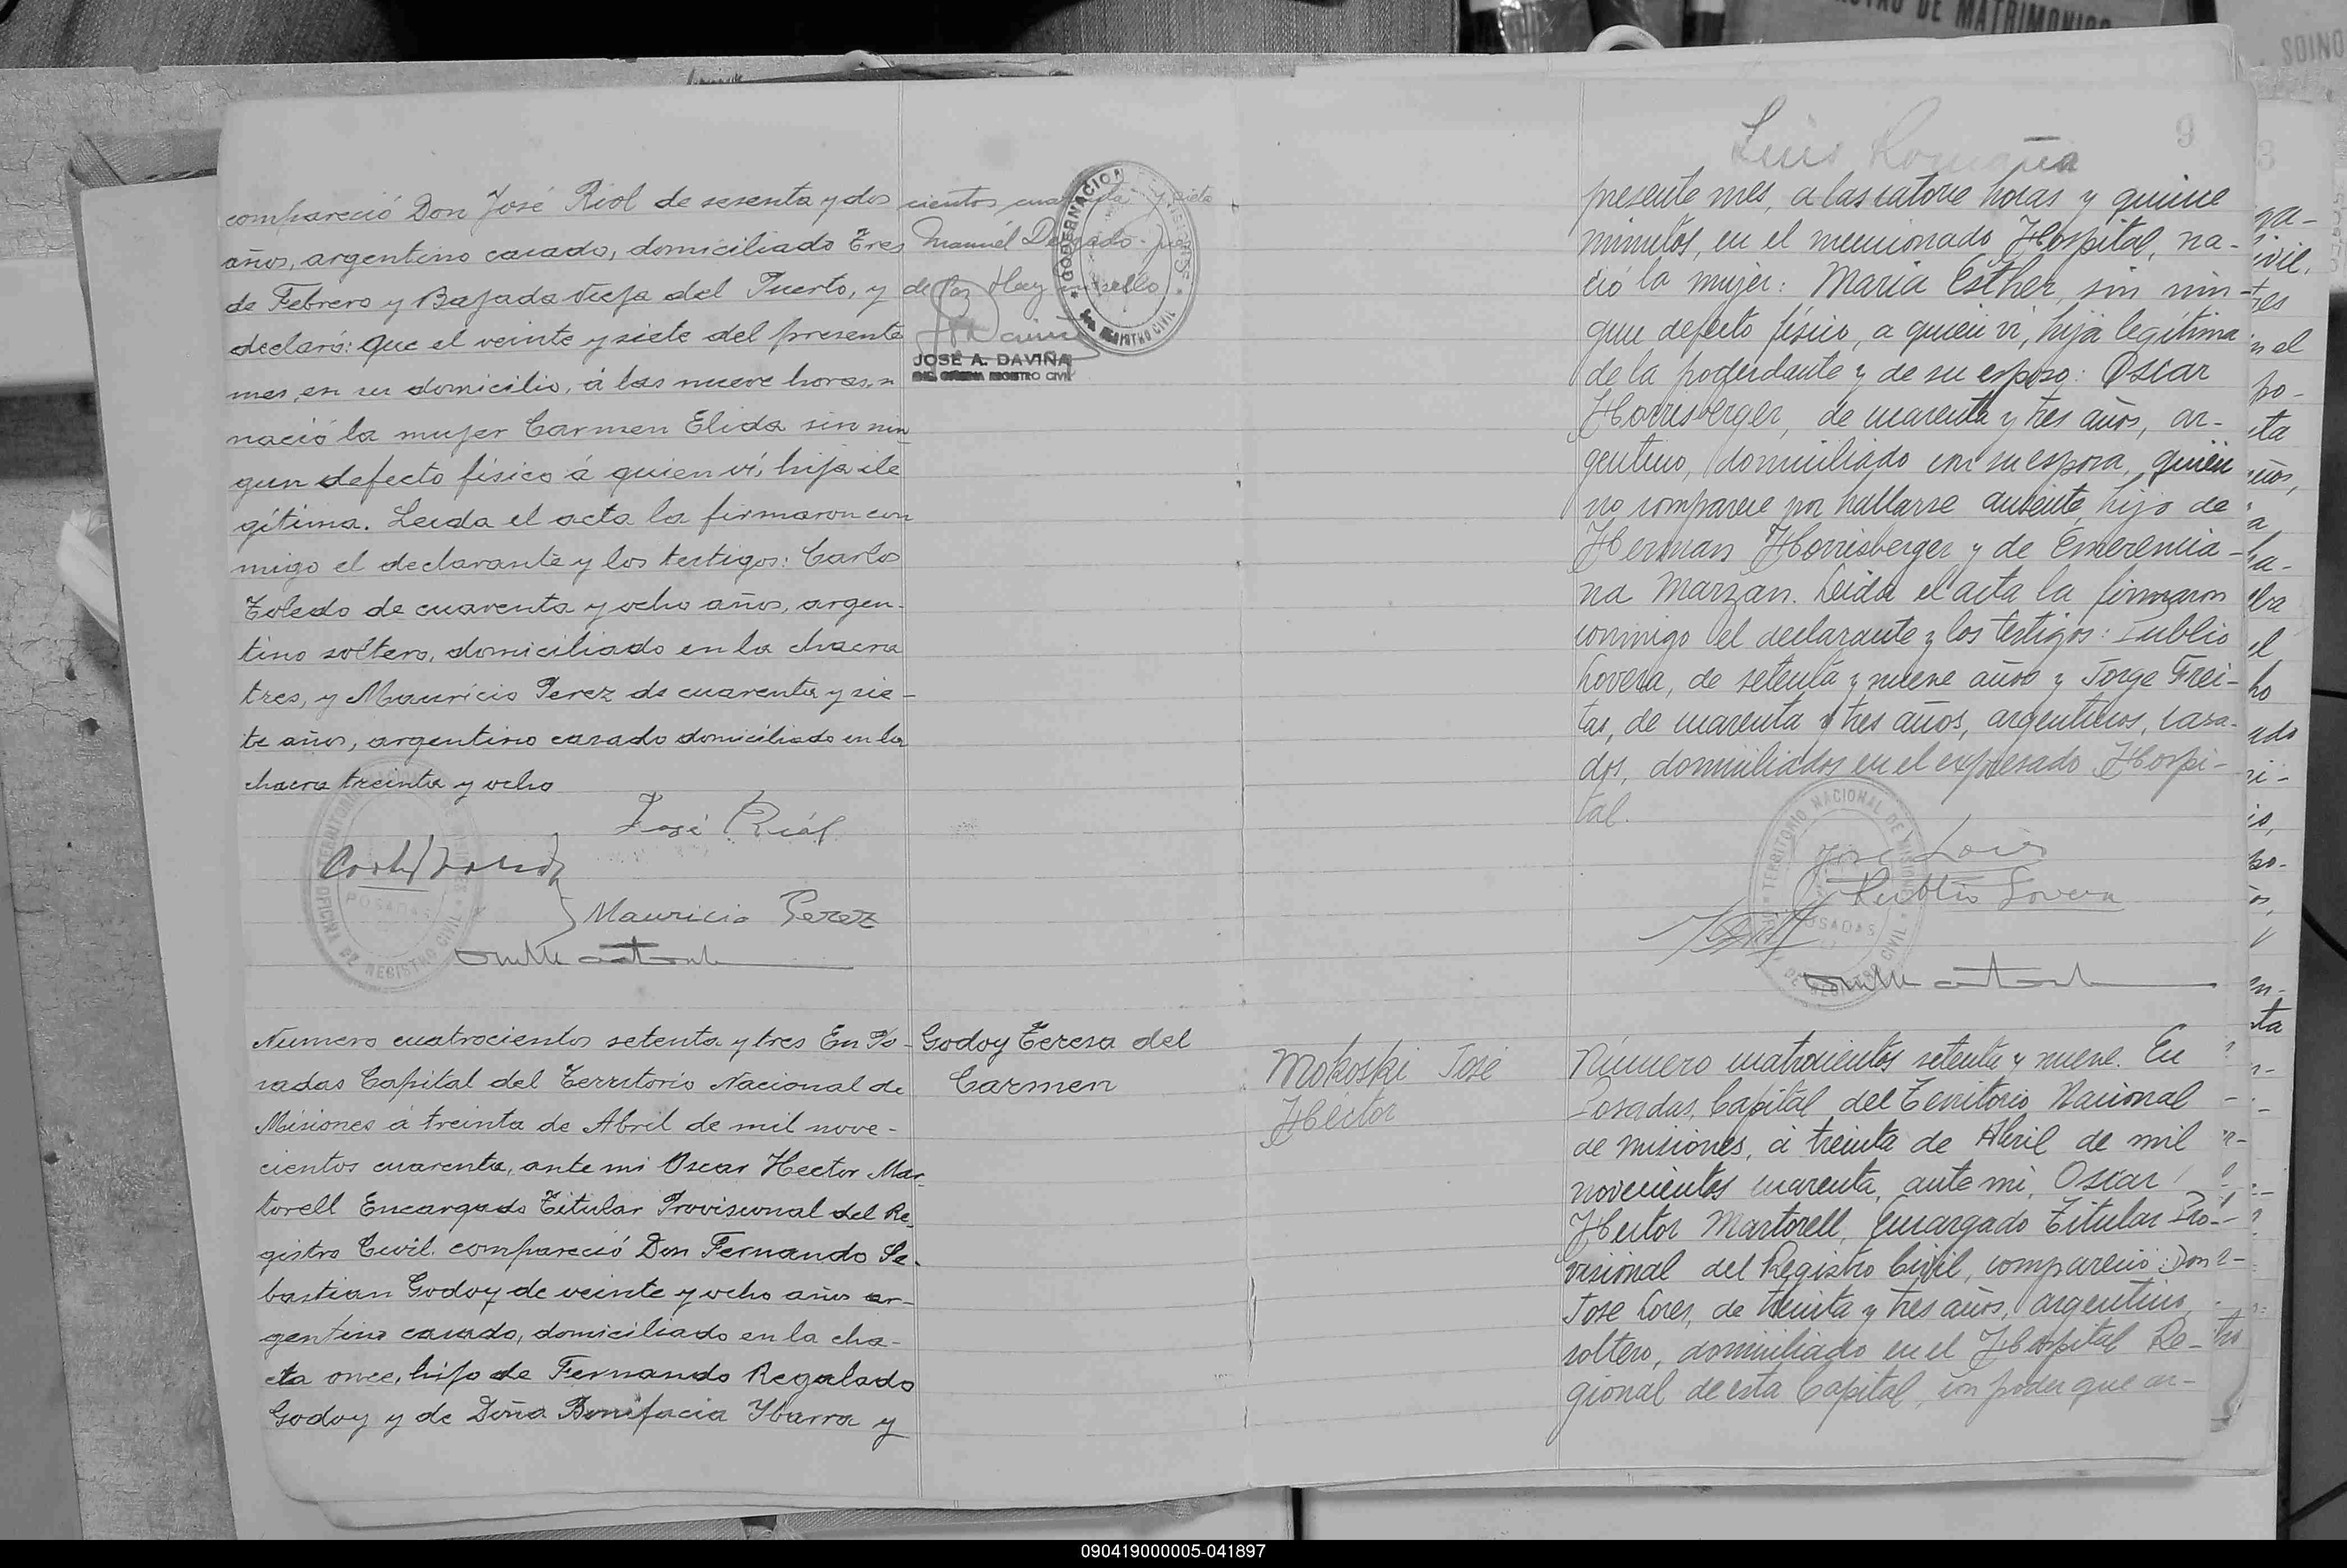 compareció Don José Riol de sesenta y dos
años, argentino casado, domiciliado Tres
de Febrero y Bajada Vieja del Puerto, y
declaró: que el veinte y siete del presente
mes, en su domicilio, á las nueve horas,
nació la mujer Carmen Elida sin nin-
gun defecto físico á quien ví, hija ile
gítima. Leida el acta la firmaron con
migo el declarante y los testigos: Carlos
Toledo de cuarenta y ocho años, argen-
tino soltero, domiciliado en la chacra
tres, y Mauricio Perez de cuarenta y sie-
te años, argentino casado domiciliado en la
chacra treinta y ocho
José Riól
Mauricio Perez
OFICINA DE REGISTRO CIVIL
POSADAS
cientos cuarenta y siete
Manuel Delgado. Juez
de Paz Hay un sello
GOBERNACION
REGISTRO CIVIL
JOSÉ A. DAVIÑA
REGISTRO CIVIL
Numero cuatrocientos setenta y tres En Po-
sadas Capital del Territorio Nacional de
Misiones á treinta de Abril de mil nove-
cientos cuarenta, ante mi Oscar Hector Mar-
torell Encargado Titular Provisional del Re-
gistro Civil. compareció Don Fernando Se-
bastian Godoy de veinte y ocho años ar-
gentino casado, domiciliado en la cha-
cra once, hijo de Fernando Regalado
Godoy y de Doña Bonifacia Ybarra y
Godoy Teresa del
Carmen
Luis Romaña
9
presente mes, a las catorce horas y quince
minutos, en el mencionado Hospital, na-
ció la mujer: Maria Esther, sin nin-
gun defecto físico, a quien ví, hija legítima
de la poderdante y de su esposo: Oscar
Horrisberger, de cuarenta y tres años, ar-
gentino, domiciliado con su esposa, quien
no comparece por hallarse ausente, hijo de
Herman Horrisberger y de Emerencia-
na Marzan. Leida el acta la firmaron
conmigo el declarante y los testigos: Publio
Lovera, de setenta y nueve años y Jorge Frei-
tas, de cuarenta y tres años, argentinos, casa-
dos, domiciliados en el expresado Hospi-
tal.
TERRITORIO NACIONAL DE MISIONES
POSADAS
DE REGISTRO CIVIL
Publio Lovera
Mokoski José
Héctor
Número cuatrocientos setenta y nueve. En
Posadas, Capital del Territorio Nacional
de Misiones, á treinta de Abril de mil
novecientos cuarenta, ante mi, Oscar
Hector Martorell, Encargado Titular Pro-
visional del Registro Civil, compareció: Don
José Lores, de treinta y tres años, argentino,
soltero, domiciliado en el Hospital Re-
gional de esta Capital, con poder que a-
DE MATRIMONIOS
090419000005-041897